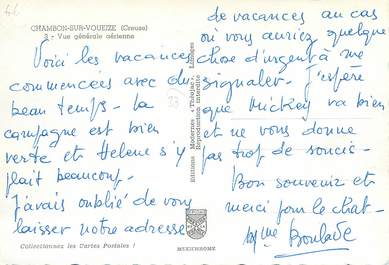 CHAMBON-SUR-VOUEIZE (Creuse)
3 - Vue générale aérienne
Voici les vacances
commencées avec du
beau temps - la
campagne est bien
verte et Hélène s'y
plait beaucoup -
J'avais oublié de vous
laisser notre adresse
Collectionnez les Cartes Postales !
Editions Modernes « Théojac »
Reproduction interdite
MEXICHROME
de vacances au cas
où vous auriez quelque
chose d'urgent à me
signaler - J'espère
que Mickey va bien
et ne vous donne
pas trop de soucis -
Bon souvenir et
merci pour le chat -
Mme Boulade